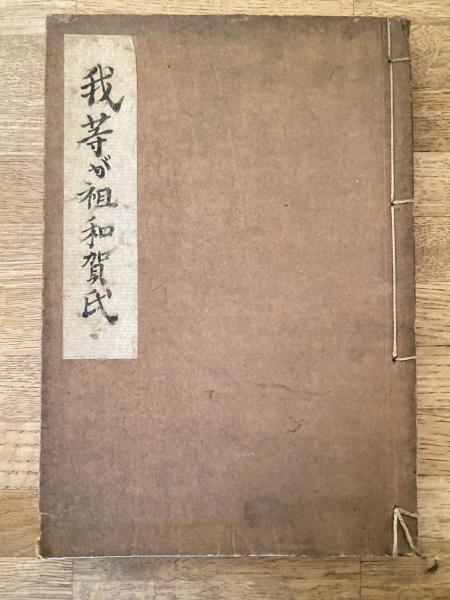 我等が祖和賀氏